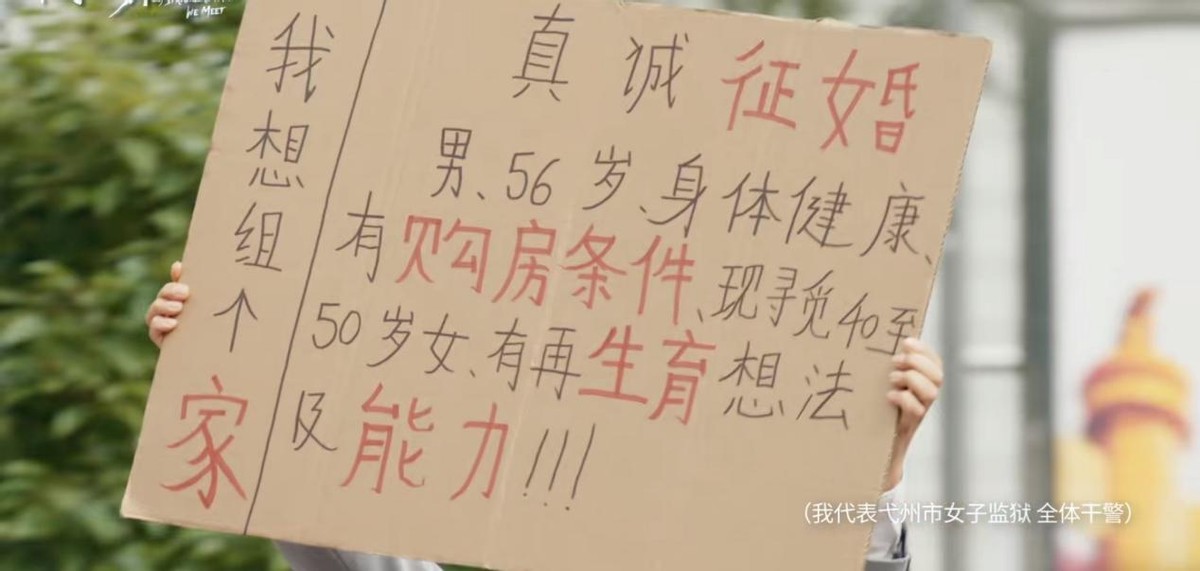 WE MEET
我想组个家
真诚征婚
男、56岁、身体健康、
有购房条件、现寻觅40至
50岁女、有再生育想法
及能力!!!
（我代表弋州市女子监狱 全体干警）